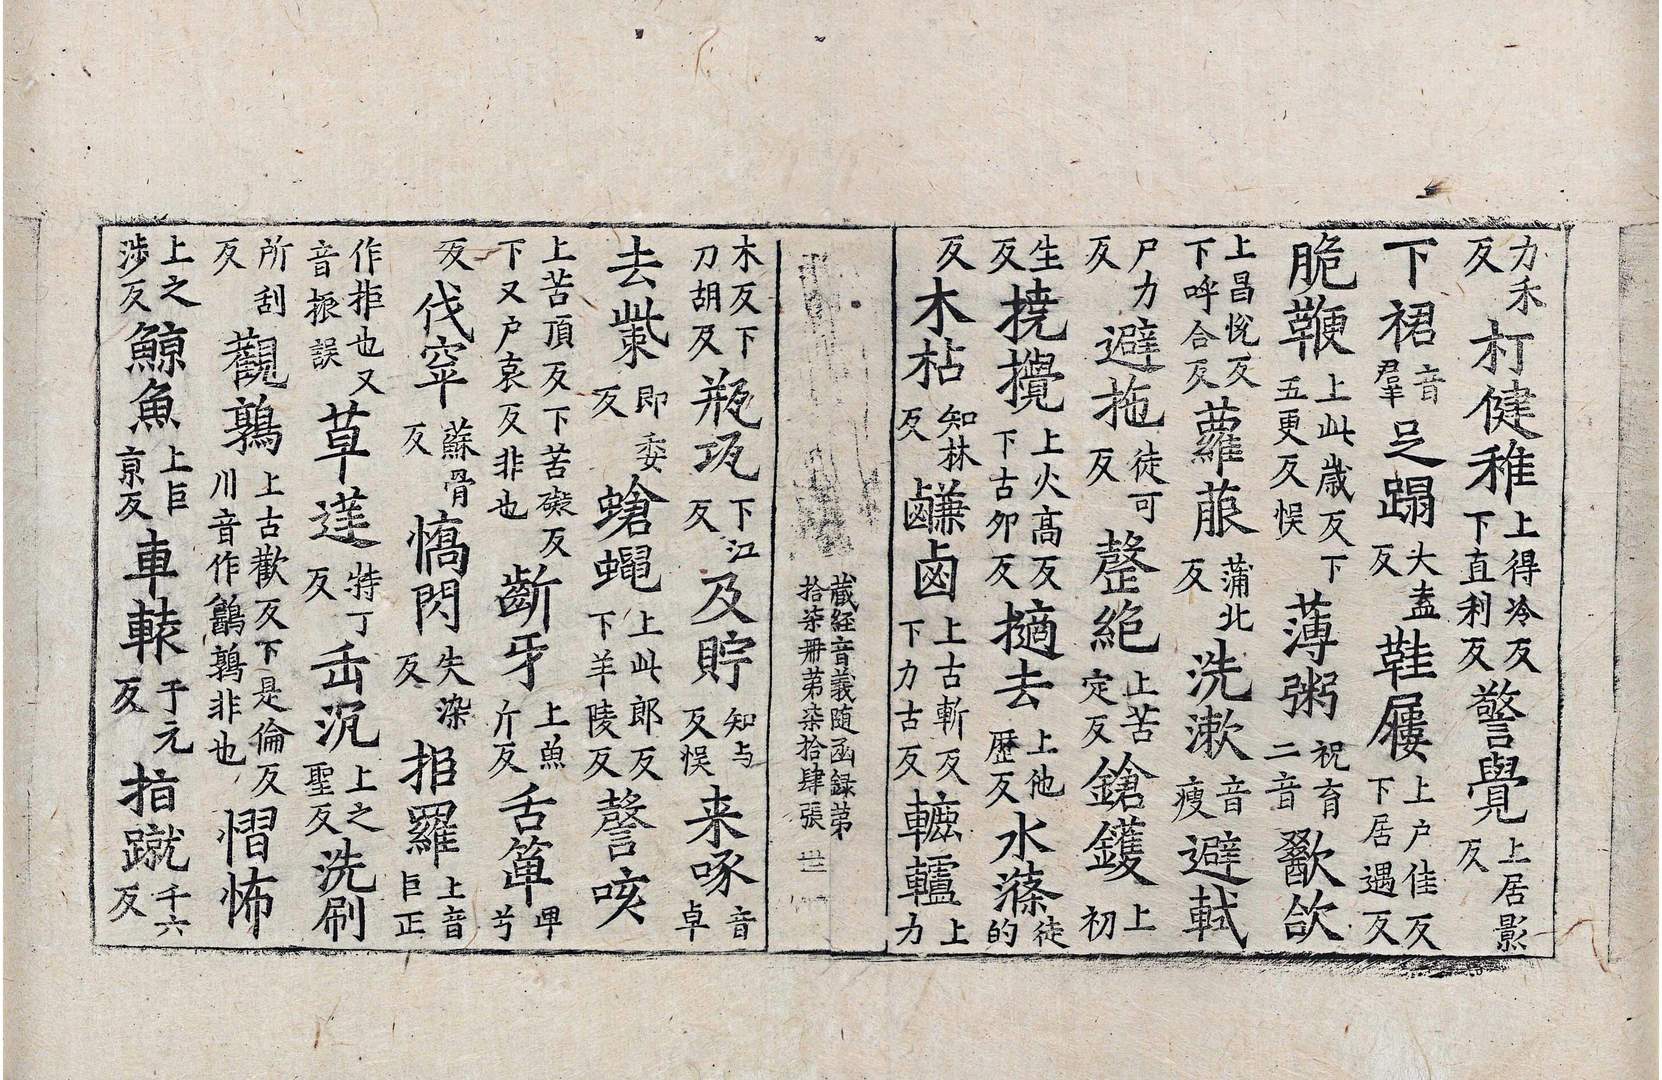 力禾反打健稚上得冷反下直利反警覺上居影反
下裙音羣足蹋大盍反鞋屨上户佳反下居遇反
脆鞕上此歲反下五更反悞薄粥祝育二音歠欱
上昌悅反下呼合反蘿菔蒲北反洗漱音瘦避軾
尸力反避拖徒可反罄絶上苦定反鎗鑊上初
生反撓攪上火高反下古夘反擿去上他歷反水滌徒的
反木枮知林反鹻鹵上古斬反下力古反轆轤上力
木反下刀胡反瓶瓨下江反及貯知与反悞来啄音卓
去㧘即委反螥蠅上此郎反下羊陵反謦咳
上苦頂反下苦礙反下又户哀反非也齗牙上魚斤反舌箄卑芎
反伐窣蘇骨反憍閃失染反拒羅上音巨正
作拒也又音振誤草莛特丁反缶沉上之聖反洗刷
所刮反觀鶉上古歡反下是倫反川音作鸙鶉非也慴怖
上之涉反鯨魚上巨京反車轅于元反指蹴千六反
藏經音義随函録第
拾柒册第柒拾肆張 世